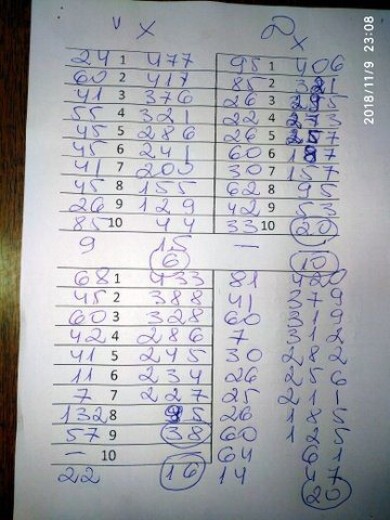 V X
∂ X
24 1 477 95 1 406
60 2 417 85 2 321
41 3 376 26 3 295
55 4 321 22 4 273
45 5 286 26 5 257
45 6 241 60 6 187
41 7 200 30 7 157
45 8 155 62 8 95
26 9 129 42 9 53
85 10 44 33 10 20
9 15 —
6 10
68 1 433 81 420
45 2 388 41 379
60 3 328 60 319
42 4 286 7 312
41 5 245 30 282
11 6 234 26 256
7 7 227 25
132 8 95 26 185
57 9 38 60 125
— 10 — 64 61
22 16 14 47
20
2018/11/9 23:08